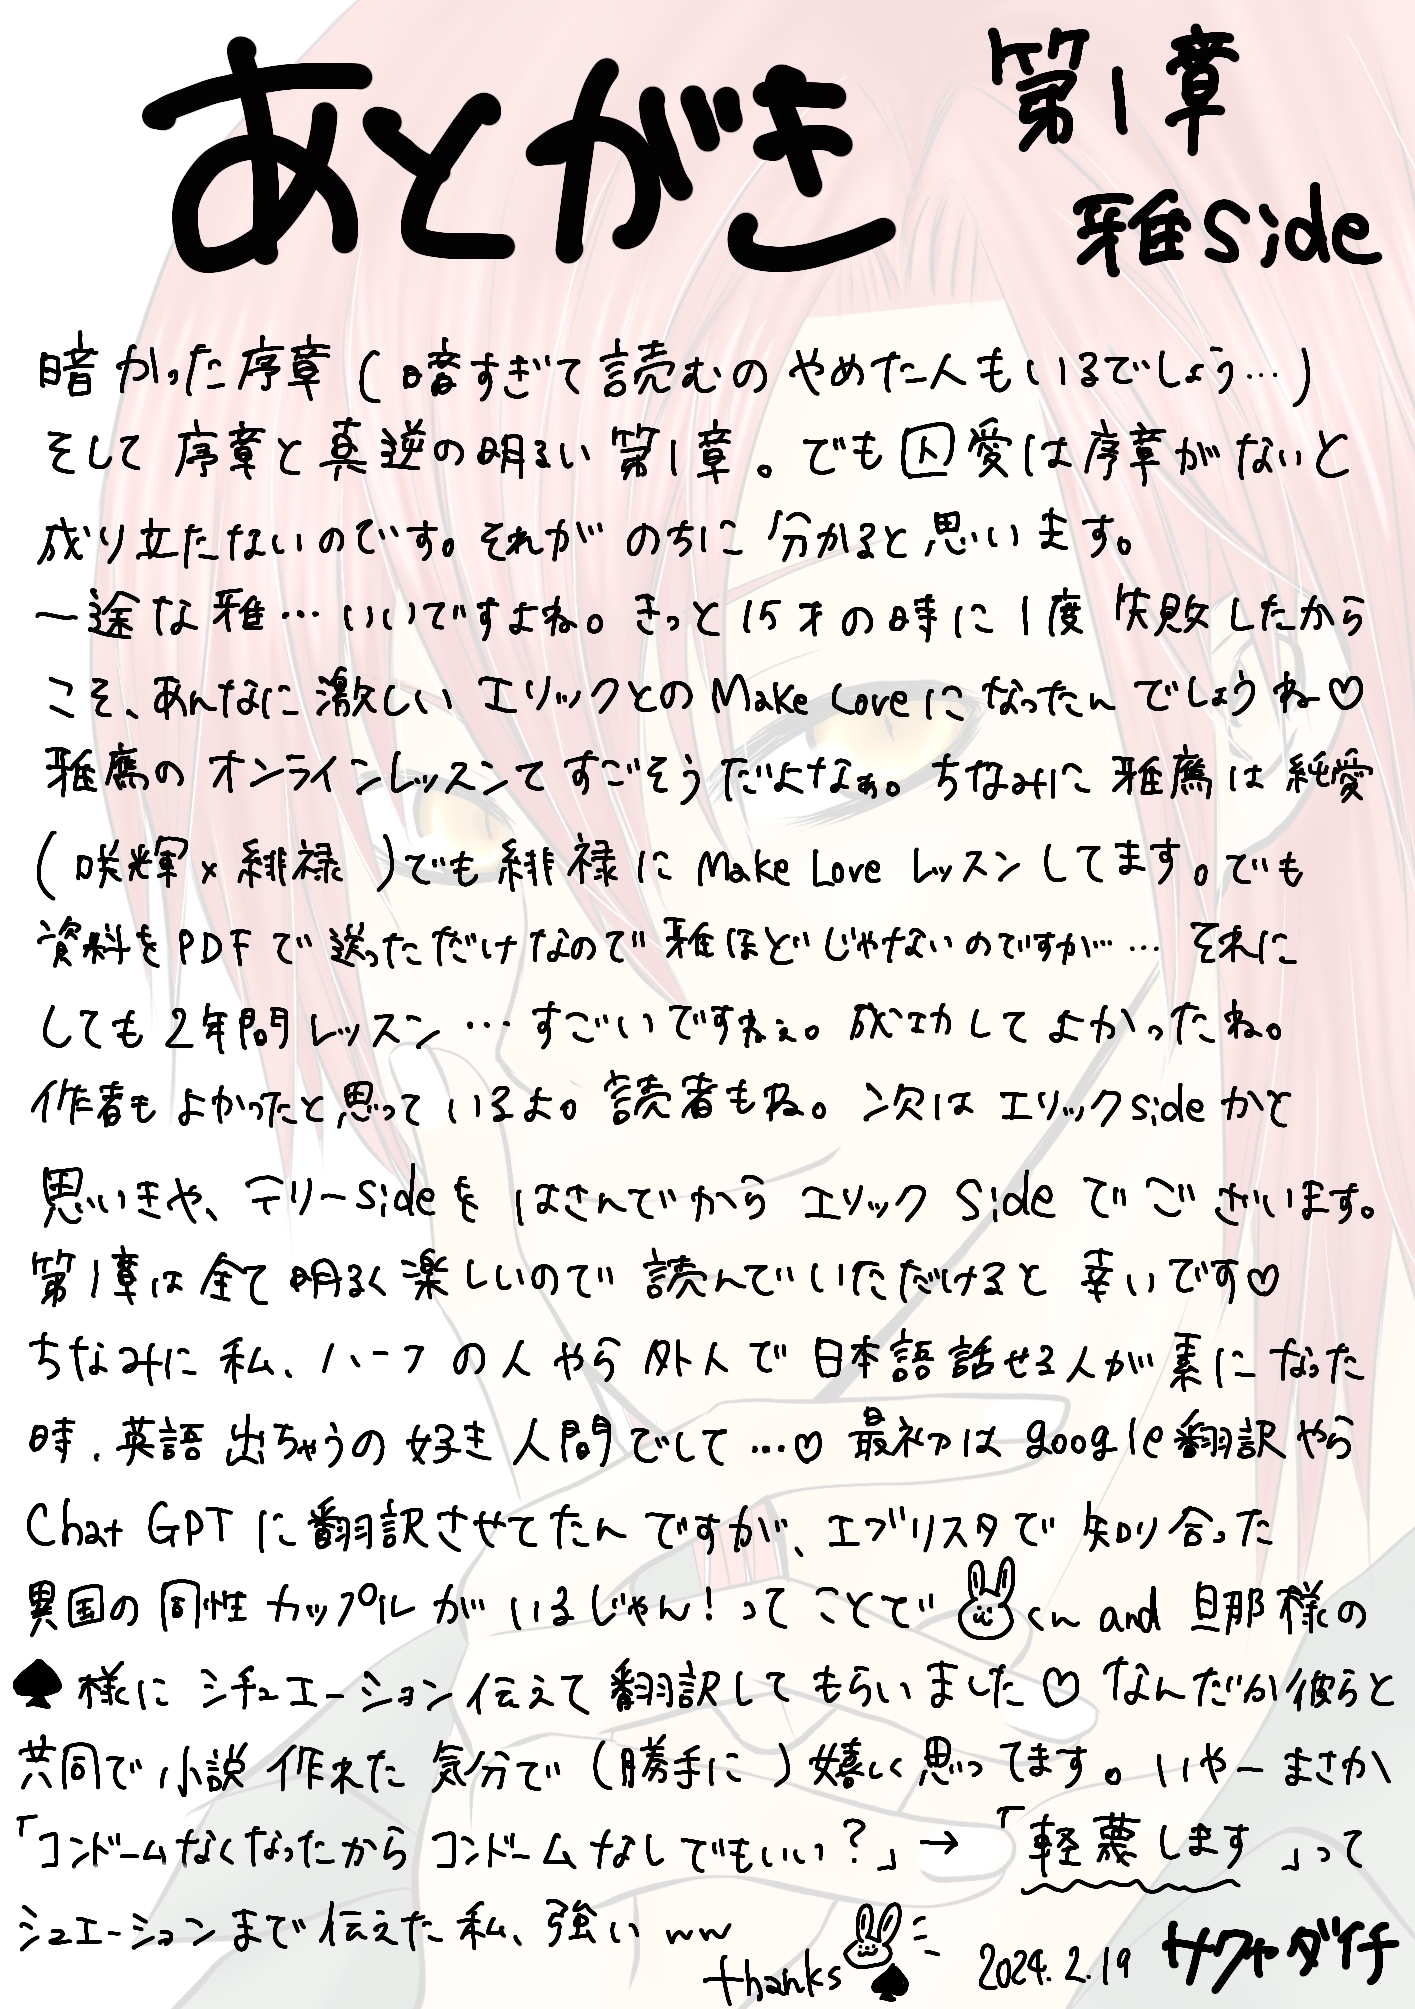 あとがき 第1章
雅side
暗かった序章(暗すぎて読むのやめた人もいるでしょう…)
そして序章と真逆の明るい第1章。でも囚愛は序章がないと
成り立たないのです。それがのちに分かると思います。
一途な雅…いいですよね。きっと15才の時に1度失敗したから
こそ、あんなに激しいエリックとのMake Loveになったんでしょうね♡
雅鷹のオンラインレッスンてすごそうだよなぁ。ちなみに雅鷹は純愛
(咲輝×緋禄)でも緋禄にMake Loveレッスンしてます。でも
資料をPDFで送っただけなので雅ほどじゃないのですが…それに
しても2年間レッスン…すごいですねぇ。成功してよかったね。
作者もよかったと思っているよ。読者もね。次はエリックsideかと
思いきや、テリーsideをはさんでからエリックsideでございます。
第1章は全て明るく楽しいので読んでいただけると幸いです♡
ちなみに私、ハーフの人やら外人で日本語話せる人が素になった
時、英語出ちゃうの好き人間でして…♡最初はgoogle翻訳やら
Chat GPTに翻訳させてたんですが、エブリスタで知り合った
異国の同性カップルがいるじゃん!ってことで くんand旦那様の
♠様にシチュエーション伝えて翻訳してもらいました♡なんだか彼らと
共同で小説作れた気分で(勝手に)嬉しく思ってます。いやーまさか
「コンドームなくなったからコンドームなしでもいい?」→「軽蔑します」って
シュエーションまで伝えた私、強いww
thanks ♠ 2024.2.19 サワヤダイチ